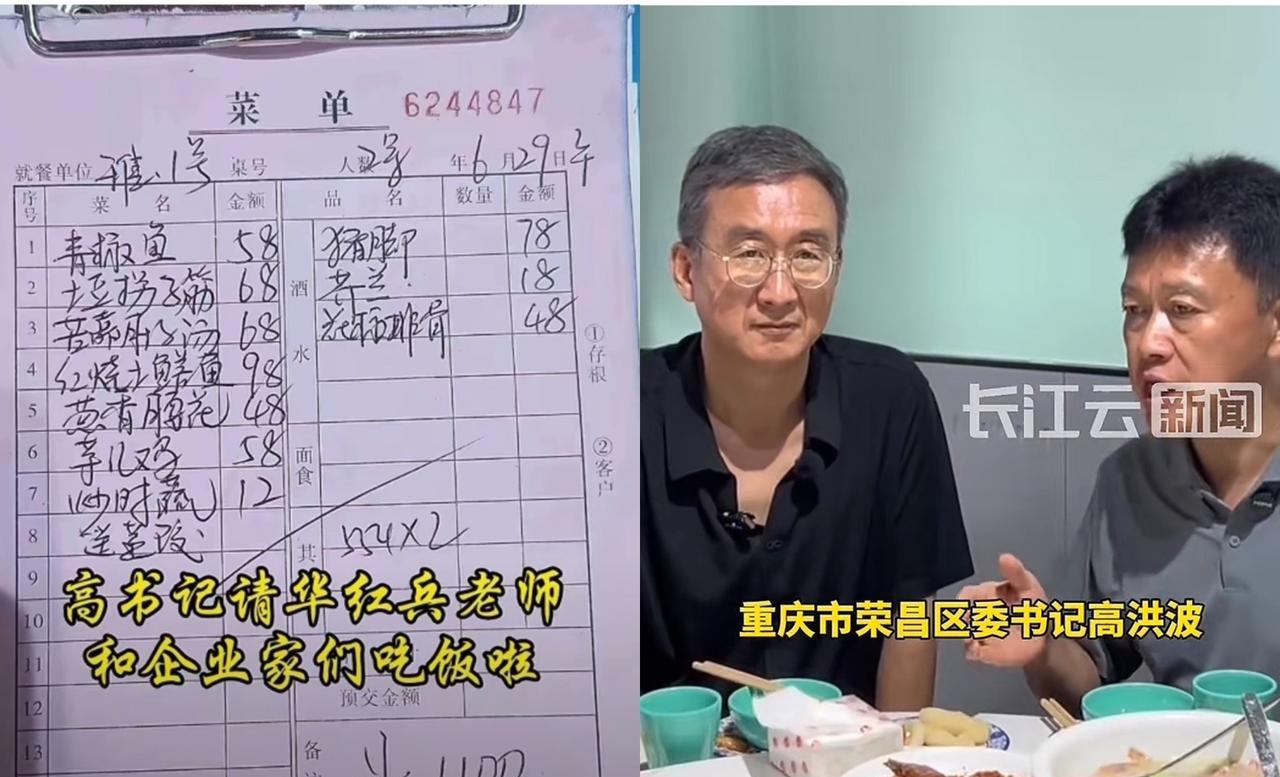 菜 单 6244847
就餐单位 雅.1号 桌号 人数 2号 年 6 月 29 日 午
序号 菜 名 金额 品 名 数量 金额
1 青椒鱼 58 猪脚 78
2 土豆拐子筋 68 酒 18
3 苦藠肚子汤 68 花椒排骨 48
4 红烧土鳝鱼 98 水
5 48
6 58 面食
7 12
8 其 554×2
9
10
11
12 预交金额
13 备
①存根
②客户
高书记请华红兵老师
和企业家们吃饭啦
长江云 新闻
重庆市荣昌区委书记高洪波